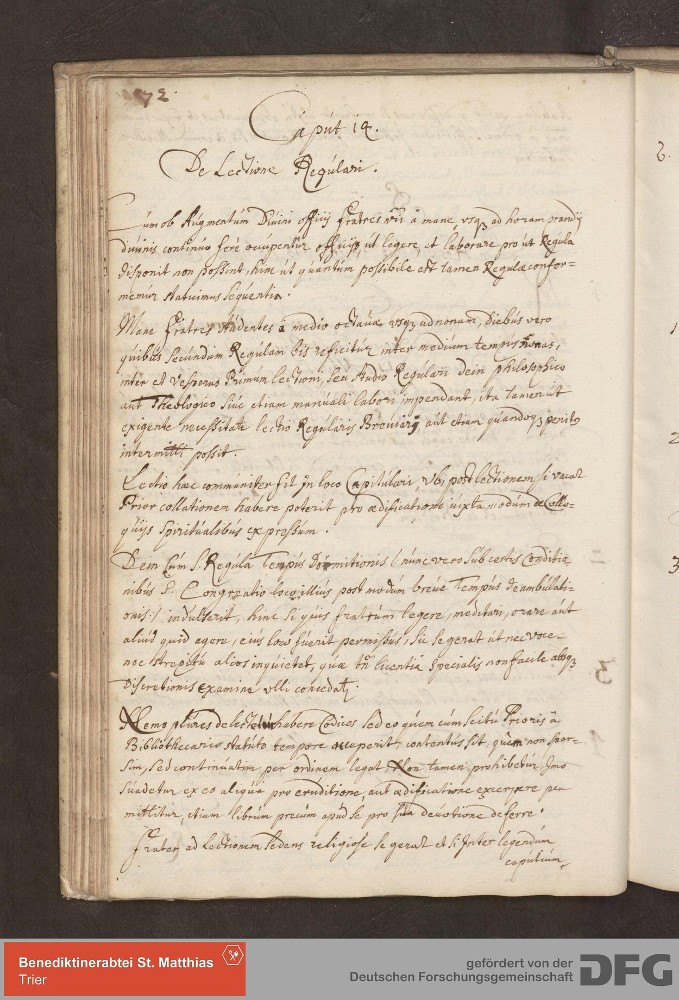 72.
Caput 14.
De Lectione Regulari.
Cum ob Augmentum Divini officij Fratres nri à mane usq3 ad horam prandij
divinis continuo fere occupentur officijs, ut legere et laborare pro ut Regula
disponit non possint, hinc ut quantum possibile est tamen Regulae confor=
memur statuimus sequentia.
Mane Fratres Studentes à medio octavae usq3 ad nonam, Diebus vero
quibus secundum Regulam bis reficitur inter medium tempus nonas,
inter et Vesperas Primum lectioni, seu studio Regulari dein philosophico
aut Theologico sive etiam manuali labori impendant, ita tamen ut
exigente necessitate lectio Regularis Breviarij aut etiam quandoq3 penitus
intermitti possit.
Lectio haec communiter fit in loco Capitulari, Ubi post lectionem si vacat
Prior collationem habere poterit pro aedificatione iuxta modum de Collo=
quijs spiritualibus expressum.
Dein Cum S. Regula Tempus Dormitionis /: nunc vero sub certis Conditio
nibus S. Congregatio loco illius post modum breve Tempus deambulati=
onis :/ indulserit, hinc si quis fratrum legere, meditari, orare aut
aliud quid agere, eius loco fuerit permissus, sic se gerat ut nec voce=
nec strepitu alios inquietet, quae tn licentia specialis non facile absq3
Discretionis examine ulli concedat.
Nemo plures delectetur habere Codices sed eo quem cum scitu Prioris à
Bibliothecario statuto tempore acceperit, contentus sit, quem non spar=
sim, sed continuatim per ordinem legat, Non tamen prohibetur, Imo
suadetur ex eo aliqua pro eruditione, aut aedificatione excerpere per
mittitur, etiam librum precum apud se pro sua devotione deferre.
Frater ad Lectionem sedens religiose se gerat et si Inter legendum
caputium,
2.
1
2
3
Benediktinerabtei St. Matthias
Trier
gefördert von der
Deutschen Forschungsgemeinschaft
DFG